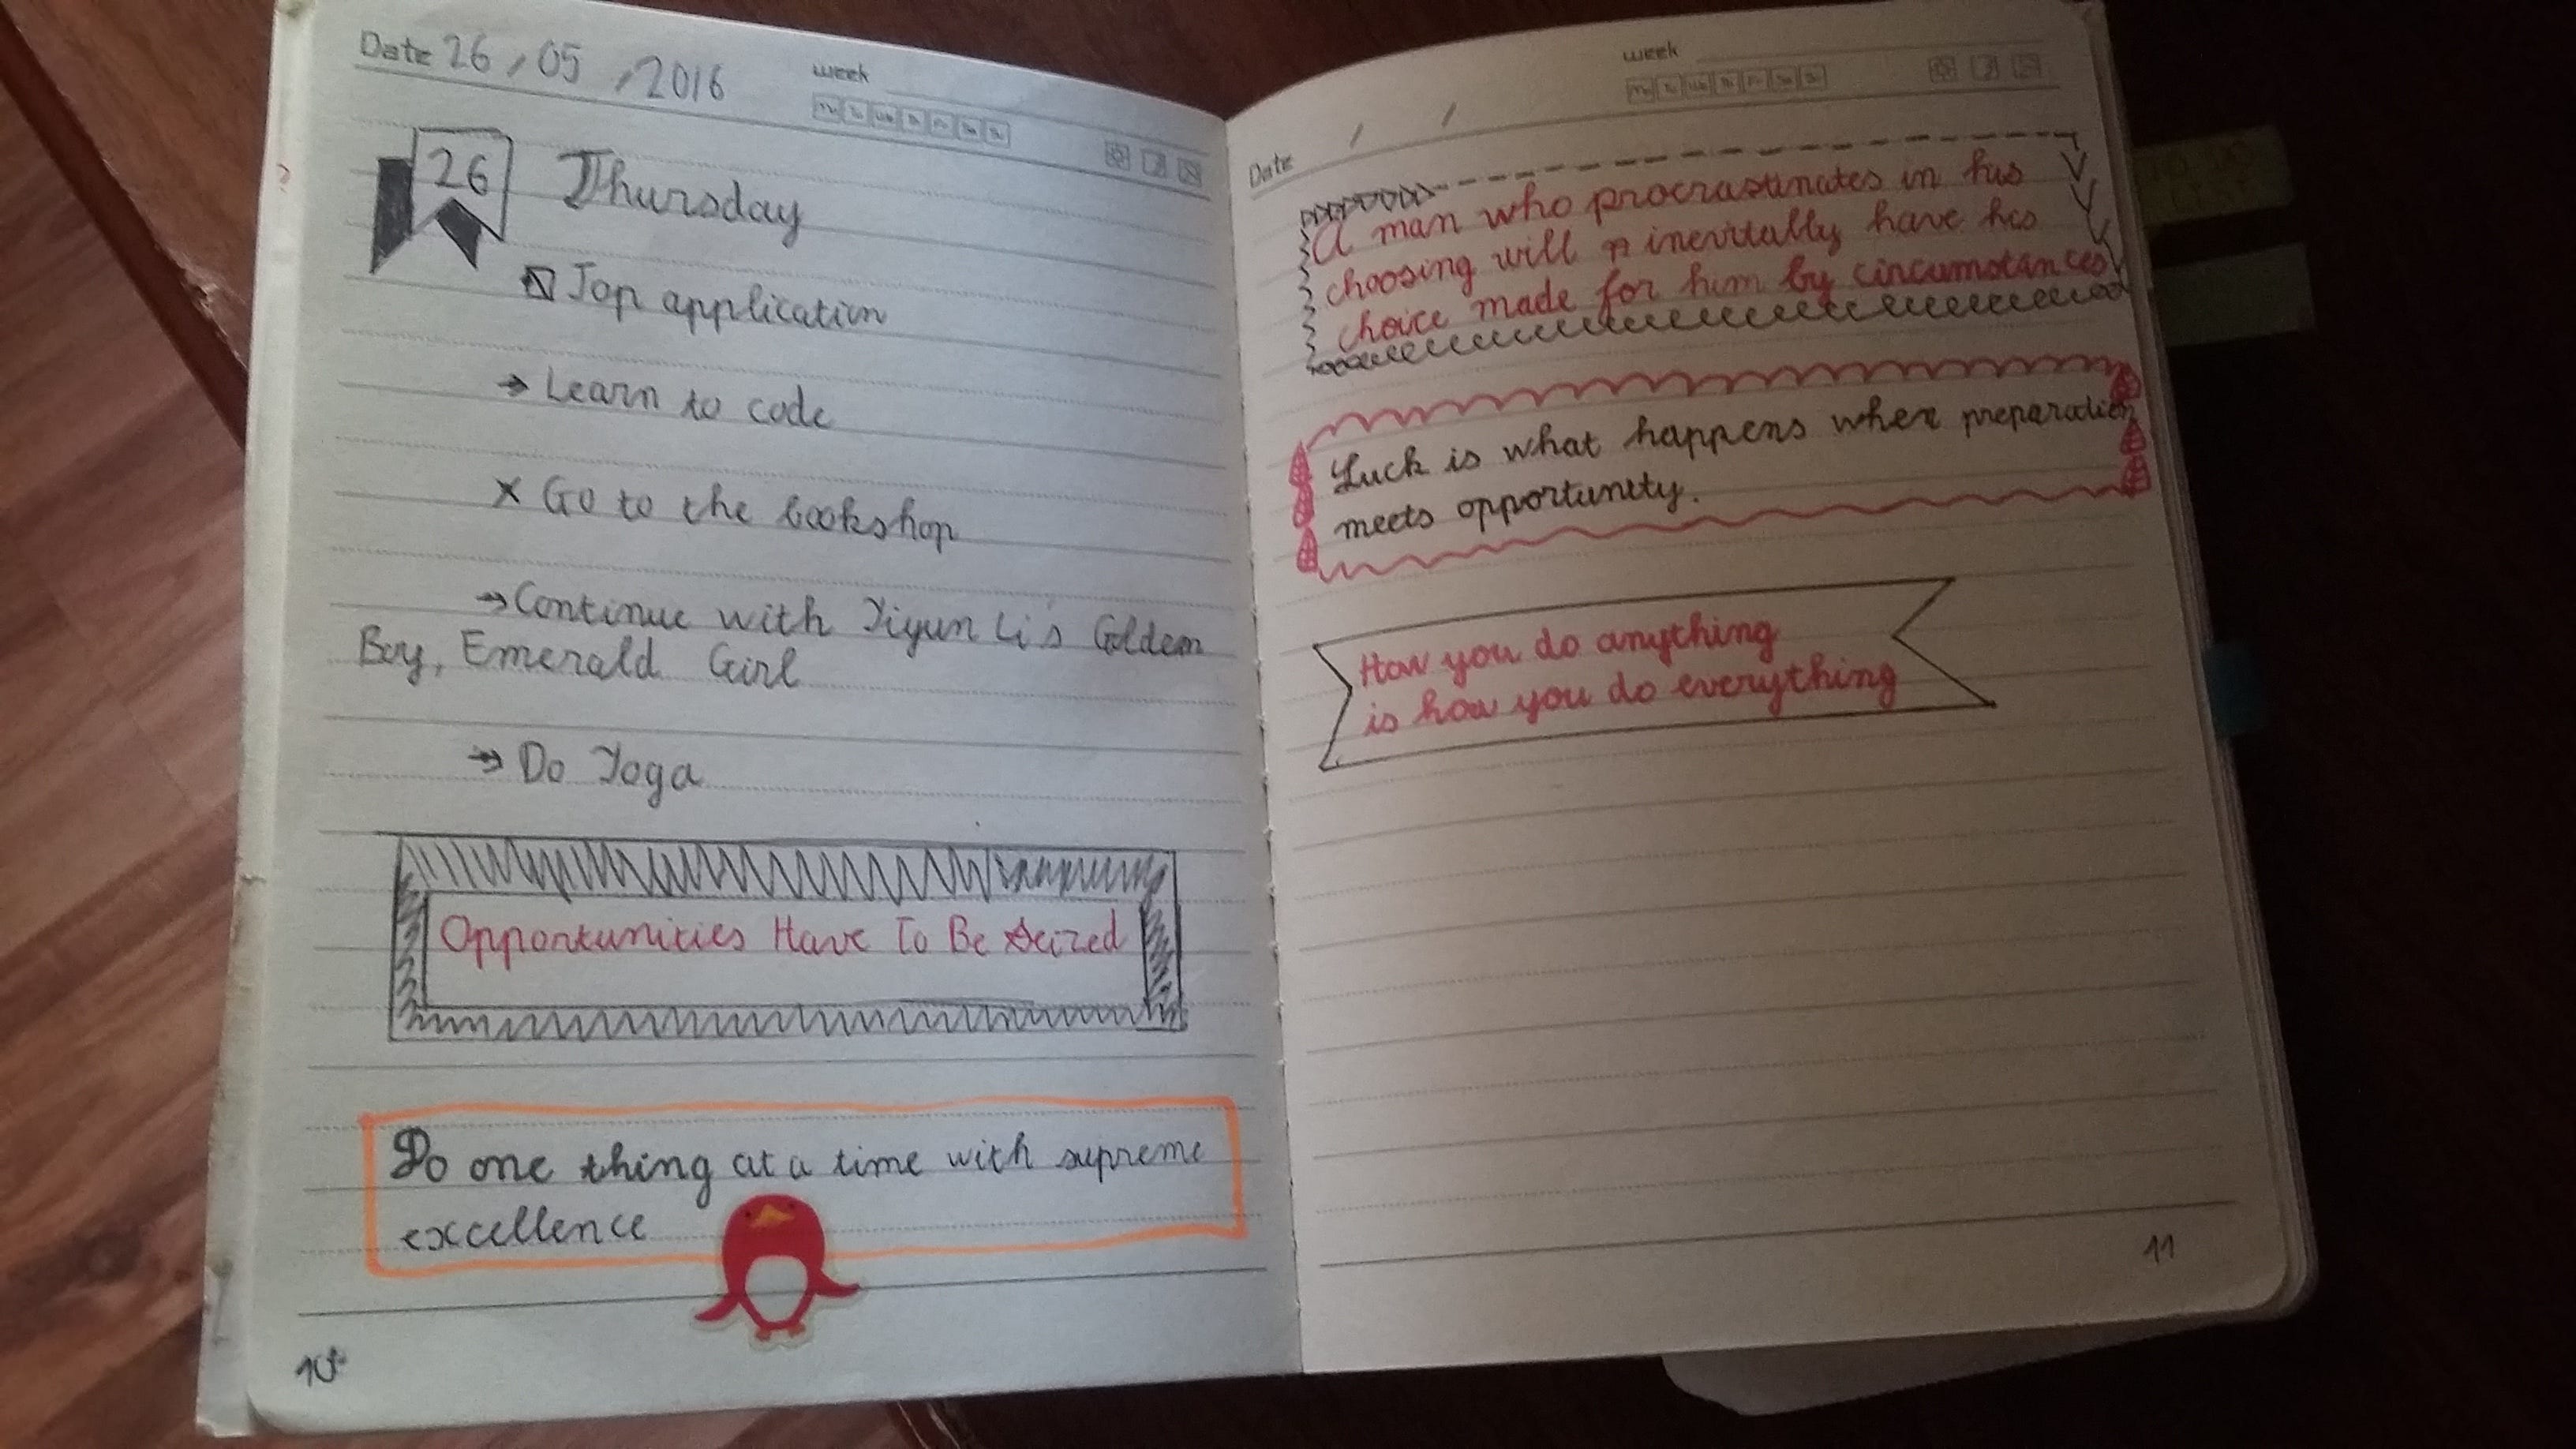 Date 26/05/2016
week
26
Thursday
Jop application
→ Learn to code
× Go to the bookshop
→ Continue with Yiyun Li's Golden
Boy, Emerald Girl
→ Do Yoga
Opportunities Have To Be Seized
Do one thing at a time with supreme
excellence
10
week
Date / /
A man who procrastinates in his
choosing will inevitally have his
choice made for him by circumstances
Luck is what happens when preparation
meets opportunity.
How you do anything
is how you do everything
11